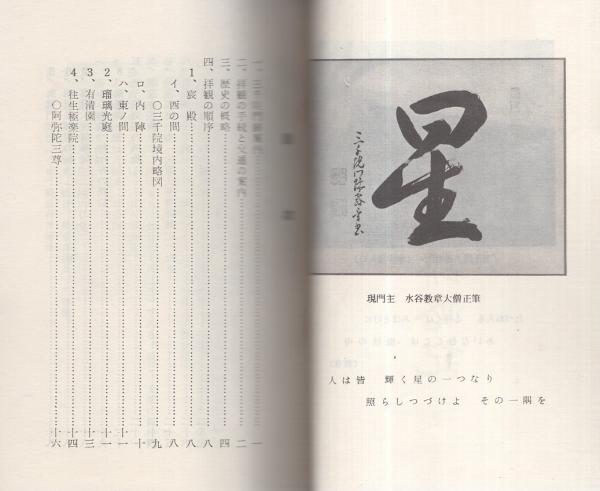 星
現門主 水谷教章大僧正筆
人は皆 輝く星の一つなり
照らしつづけよ その一隅を
一、三千院門跡案内…一
二、拝観の手続と交通の案内…二
三、歴史の概略…四
四、拝観の順序…八
1、宸殿…八
イ、西の間…八
○三千院境内略図…九
ロ、内陣…十
ハ、東ノ間…十一
2、瑠璃光庭…十一
3、有清園…十三
4、往生極楽院…十四
○阿弥陀三尊…十六